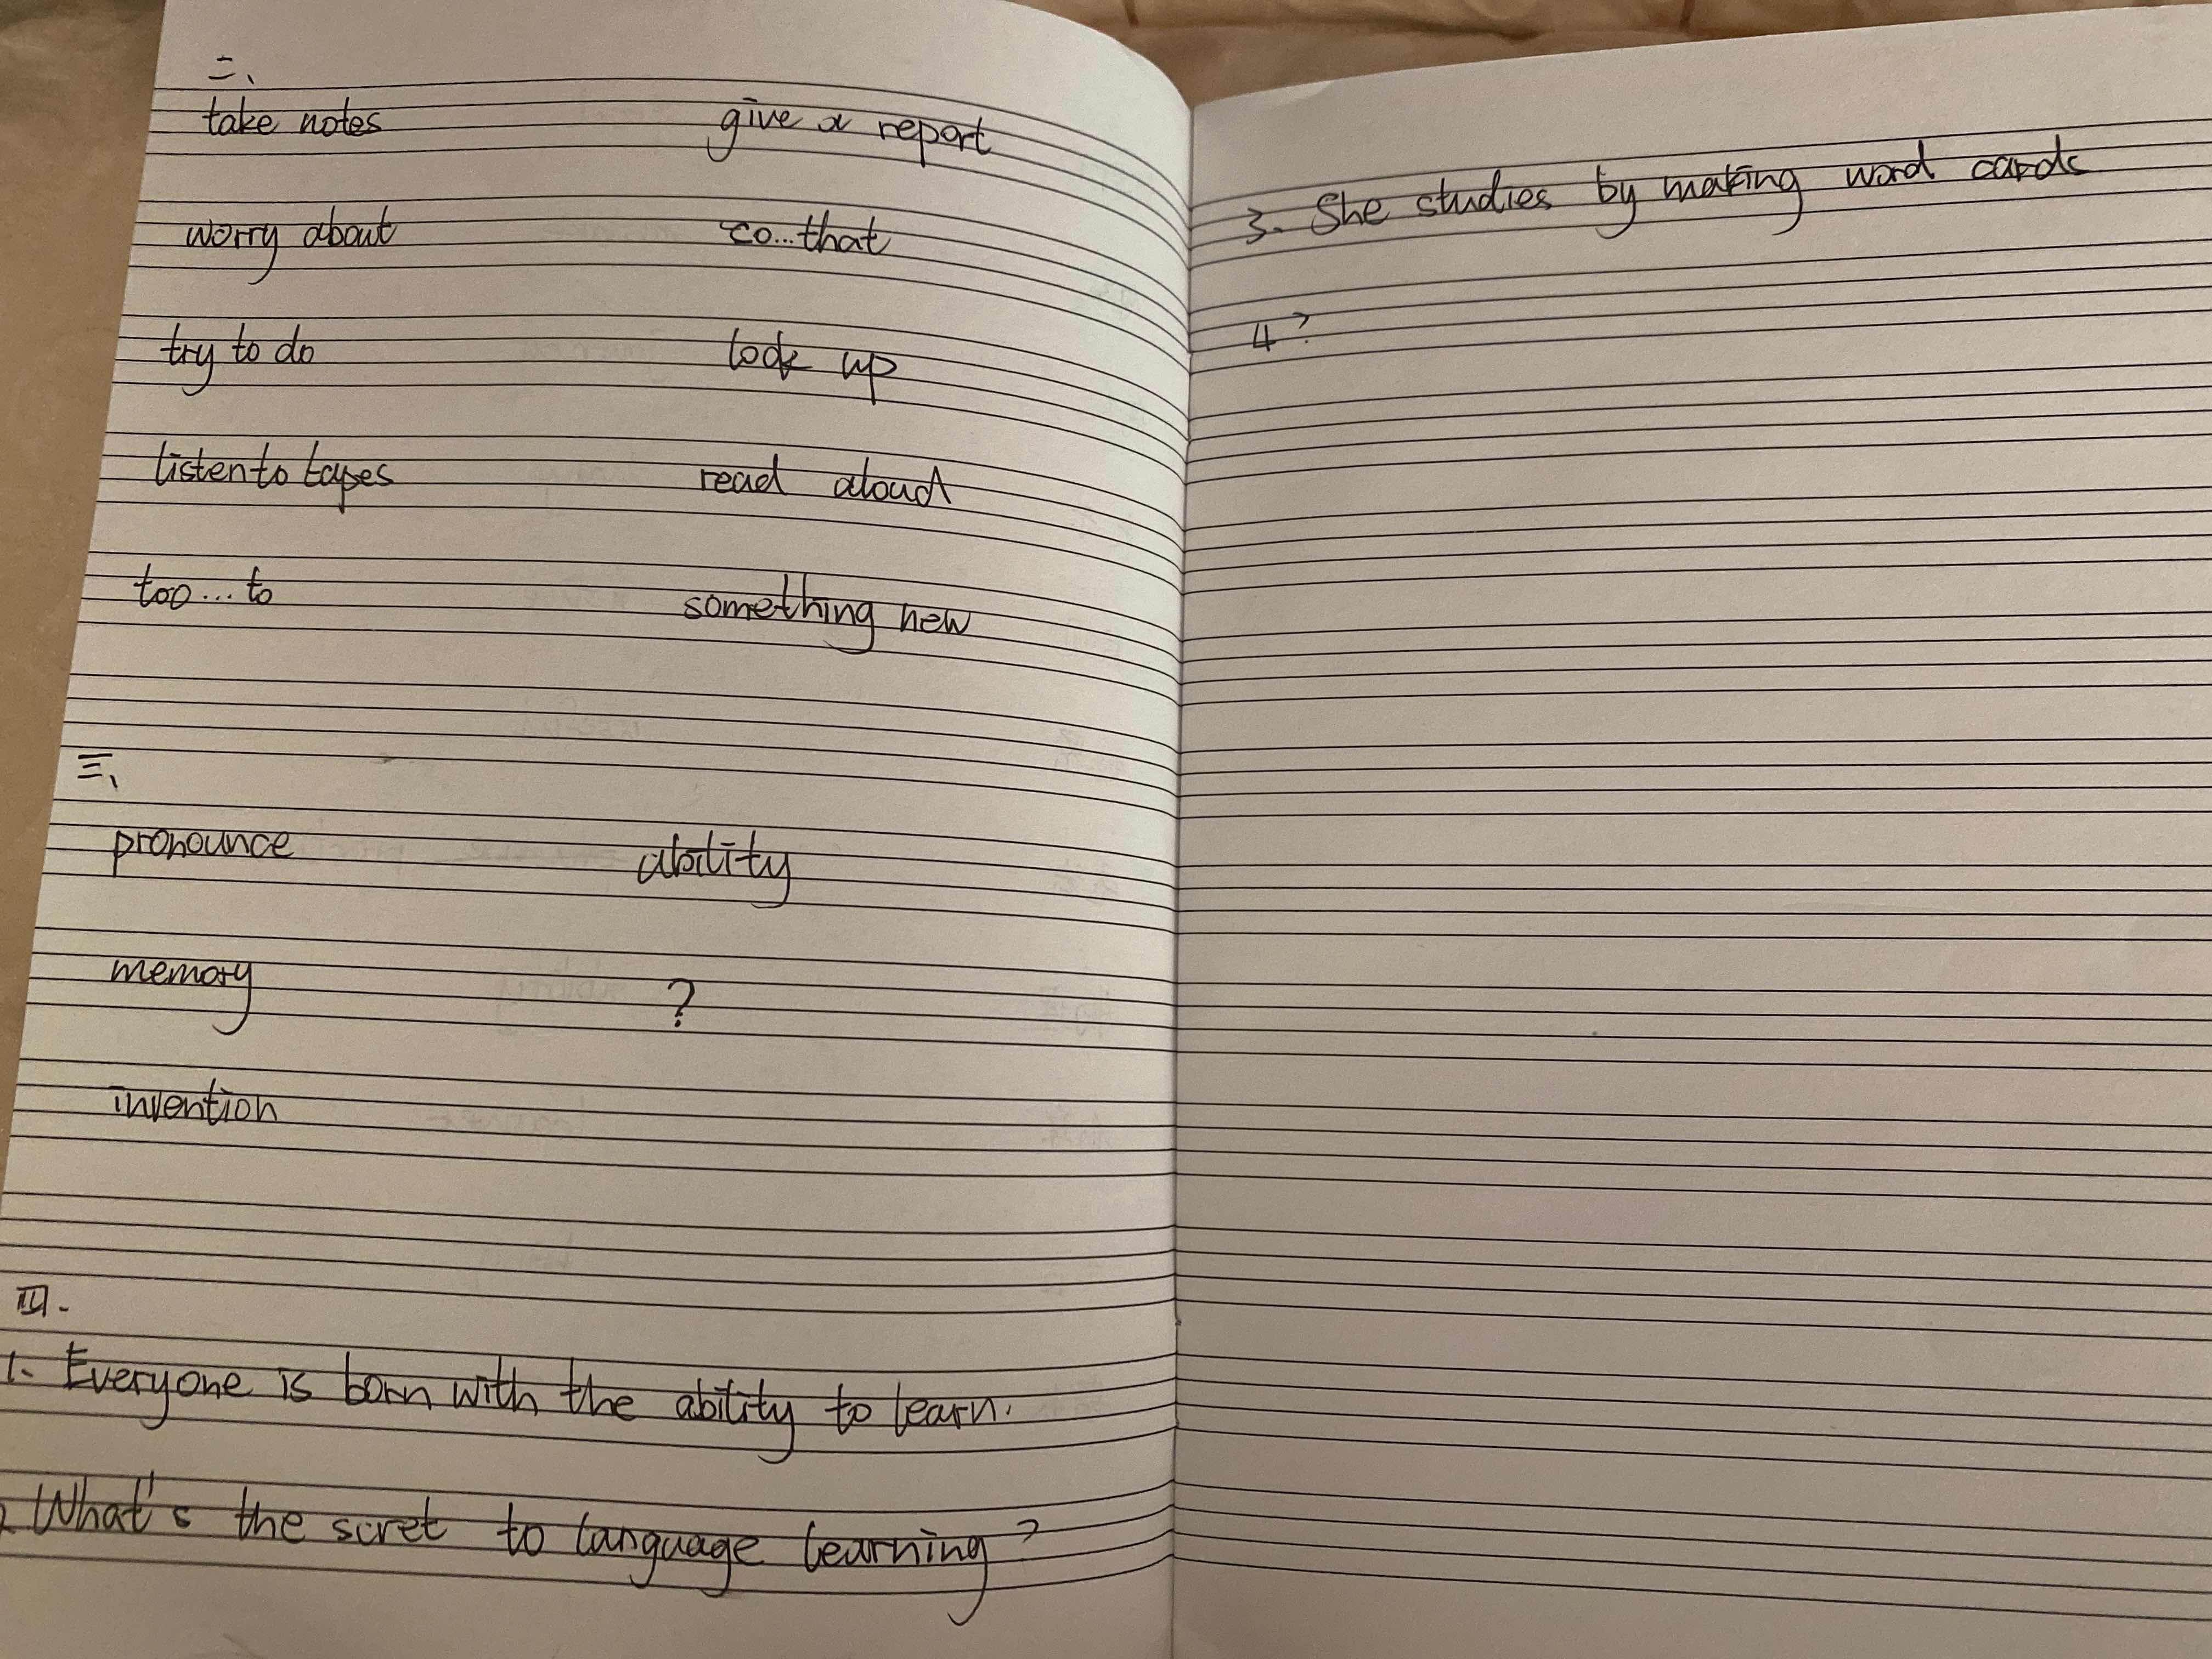 二、
take notes give a report
worry about so...that
try to do look up
listen to tapes read aloud
too...to something new
三、
pronounce ability
memory ?
invention
四.
1. Everyone is born with the ability to learn.
2. What's the scret to language learning?
3. She studies by making word cards
4?